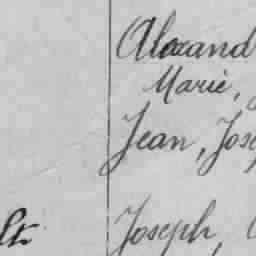 Alexand
Marie,
Jean, Jose
Joseph,